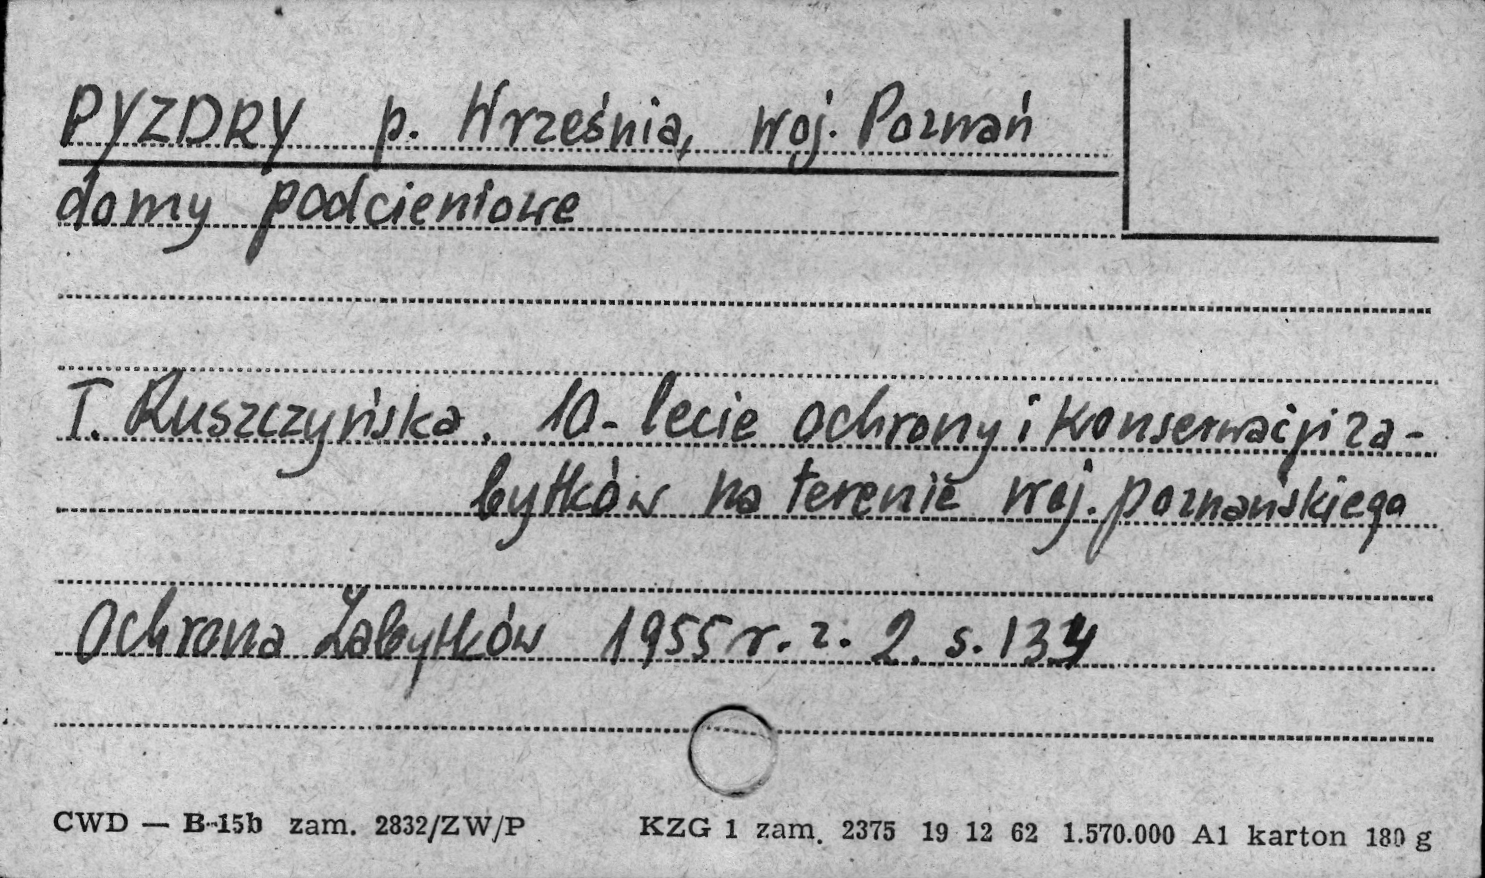 PYZDRY p. Września, woj. Poznań
domy podcieniowe
T. Ruszczyńska. 10-lecie ochrony i konserwacji za-
bytków na terenie woj. poznańskiego
Ochrona Zabytków 1955 r. z. 2. s. 134
CWD — B-15b zam. 2832/ZW/P KZG 1 zam. 2375 19 12 62 1.570.000 A1 karton 180 g